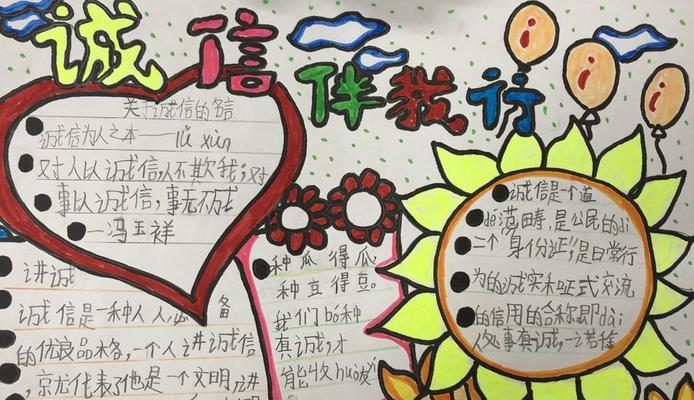 诚信伴我行
关于诚信的名言
诚信为人之本——lǔ xùn
对人以诚信,人不欺我;对
事以诚信,事无不成
—冯玉祥
讲诚
诚信是一种人人必 备
的优良品格,一个人讲诚信
,就代表了他是一个文明,讲
种瓜得瓜
种豆得豆。
我们bō种
真诚,才
能收huò
诚信是个道
dé范畴,是公民的dì
二个"身份证",是日常行
为的诚实和正式交流
的信用的合称,即dài
人处事真诚、